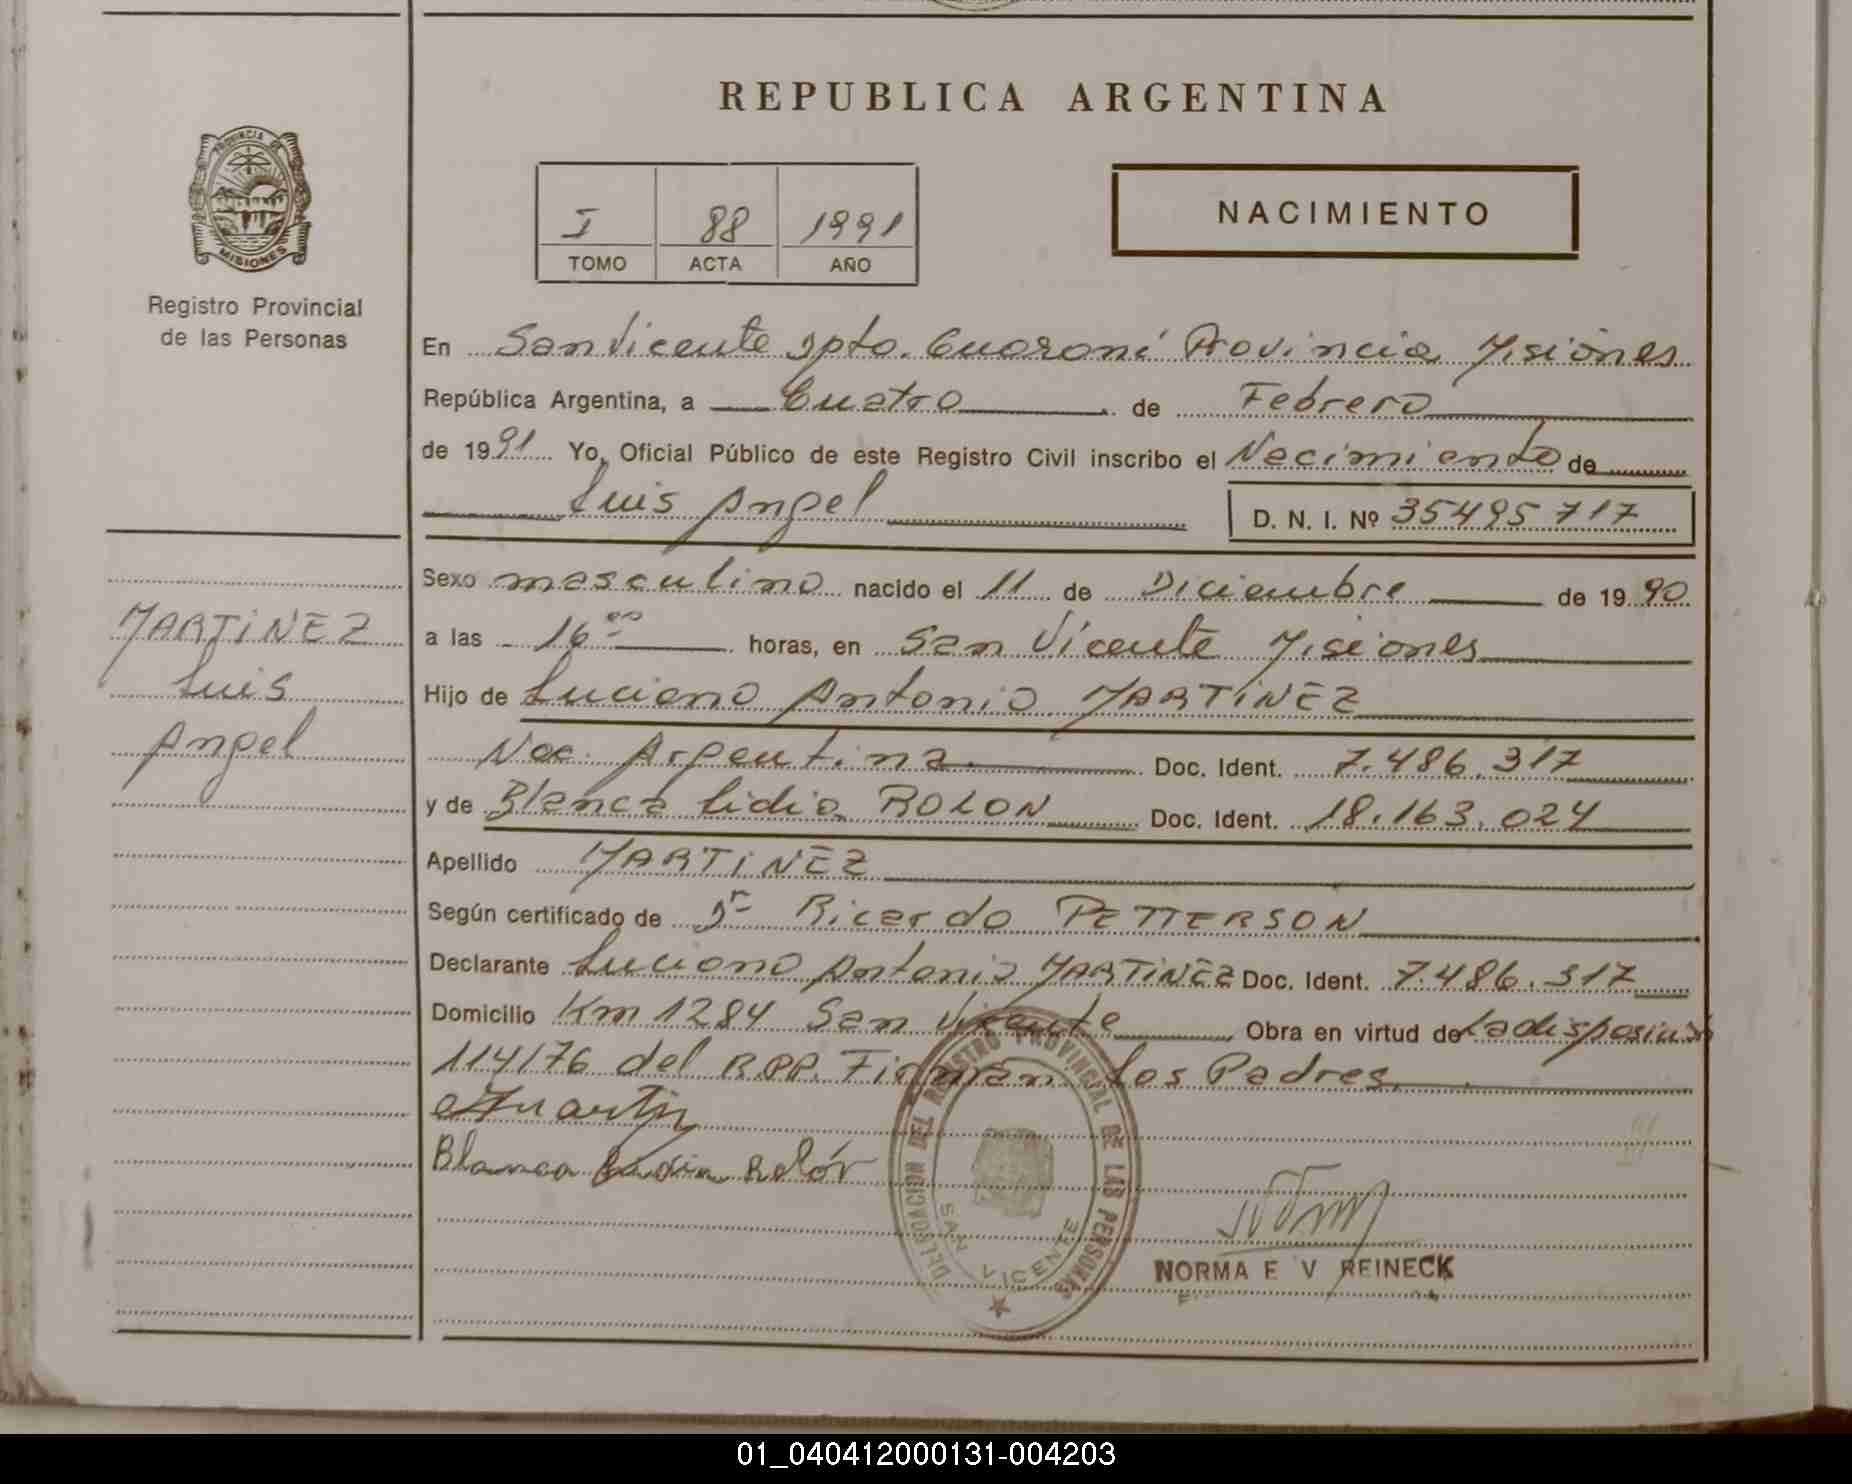 REPUBLICA ARGENTINA
PROVINCIA DE
MISIONES
Registro Provincial
de las Personas
I 88 1991
TOMO ACTA AÑO
NACIMIENTO
En San Vicente Dpto. Guaraní Provincia Misiones
República Argentina, a Cuatro de Febrero
de 1991 Yo, Oficial Público de este Registro Civil inscribo el Nacimiento de
Luis Angel D. N. I. Nº 35495717
MARTINEZ
Luis
Angel
Sexo masculino nacido el 11 de Diciembre de 1990
a las 16 00 horas, en San Vicente Misiones
Hijo de Luciano Antonio MARTINEZ
Nac. Argentina Doc. Ident. 7.486.317
y de Blanca Lidia ROLON Doc. Ident. 18.163.024
Apellido MARTINEZ
Según certificado de Dr Ricardo PETTERSON
Declarante Luciano Antonio MARTINEZ Doc. Ident. 7.486.317
Domicilio Km 1284 San Vicente Obra en virtud de La disposición
114/76 del R.P.P. Firman Los Padres
Blanca Lidia Rolón
DELEGACION DEL REGISTRO PROVINCIAL DE LAS PERSONAS
SAN VICENTE
NORMA E V REINECK
01_040412000131-004203